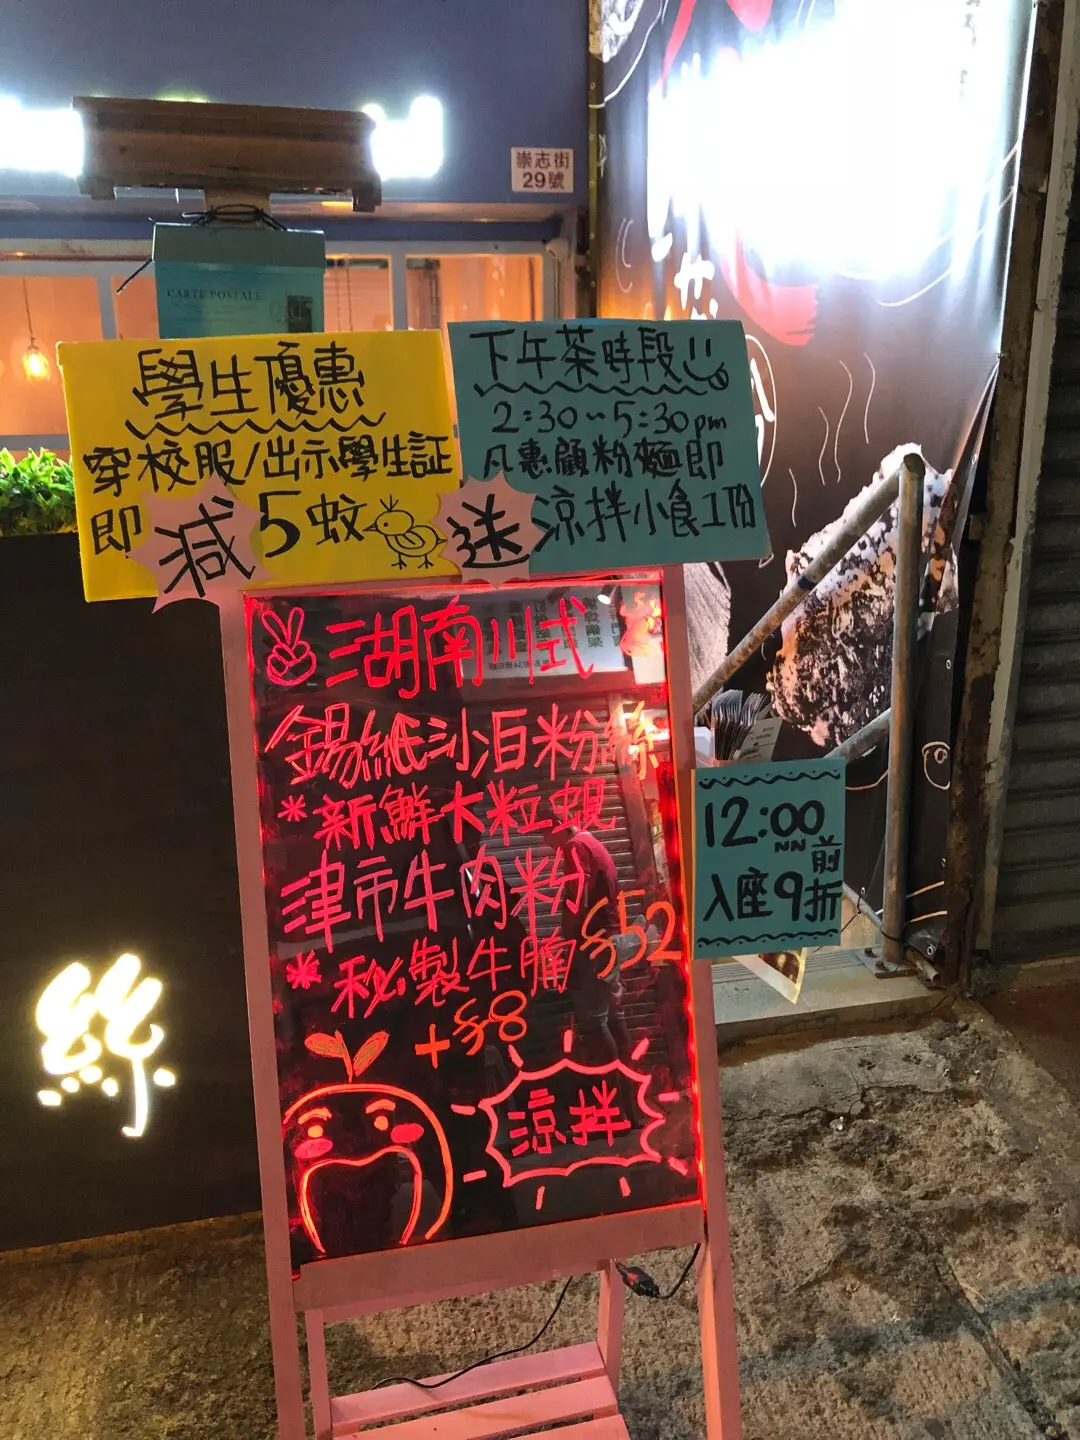 崇志街
29號
L'ARTE POSTALE
學生優惠
穿校服/出示學生証
即減5蚊
下午茶時段
2:30~5:30pm
凡惠顧粉麵即
送涼拌小食1份
湖南川式
錫紙沙泊粉絲
*新鮮大粒蜆
津市牛肉粉
$52
*秘製牛腩
+$8
涼拌
12:00前
入座9折
絲